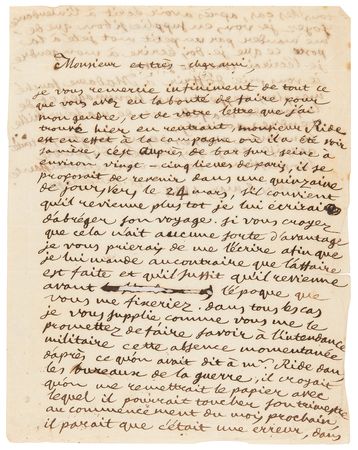 Monsieur et très-cher ami,
je vous remercie infiniment de tout ce
que vous avez eu la bonté de faire pour
mon gendre, et de votre lettre que j'ai
trouvé hier en rentrant, monsieur Ride
est en effet à la campagne où il a été voir
sa mère, c'est auprès de bar sur seine à
environ vingt cinq lieues de paris, il se
proposait de revenir dans une quinzaine
de jours vers le 24 mars, s'il convient
qu'il revienne plus tot je lui écrirais
d'abréger son voyage. si vous croyez
que cela n'ait aucune sorte d'avantage
je vous prierai de me l'écrire afin que
je lui mande au contraire que l'affaire
est faite et qu'il suffit qu'il revienne
avant l'époque que
vous me fixeriez. dans tous les cas
je vous supplie comme vous me le
promettez de faire savoir à l'intendance
militaire cette absence momentanée
d'après ce qu'on avait dit à mr. Ride dans
les bureaux de la guerre, il croyait
qu'on me remettrait le papier avec
lequel il pourrait toucher son trimestre
au commencement du mois prochain,
il parait que c'était une erreur, dans